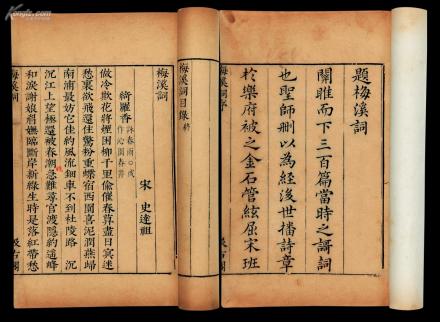 Kongfz.com
題梅溪詞
關雎而下三百篇當時之謌詞
也聖師刪以為經後世播詩章
於樂府被之金石管絃屈宋班
梅溪詞序
汲古閣
梅溪詞目錄
終
梅溪詞
宋 史達祖
綺羅香
詠春雨
做冷欺花將煙困柳千里偷催春暮盡日冥迷
愁裏欲飛還住驚粉重蝶宿西園喜泥潤燕歸
南浦最妨它佳約風流鈿車不到杜陵路 沉
沉江上望極還被春潮急難尋官渡隱約遙峰
和淚謝娘眉嫵臨斷岸新綠生時是落紅帶愁
梅溪詞
汲古閣